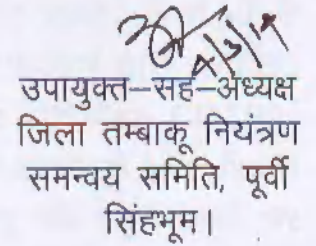 4/3/19
उपायुक्त–सह–अध्यक्ष
जिला तम्बाकू नियंत्रण
समन्वय समिति, पूर्वी
सिंहभूम।